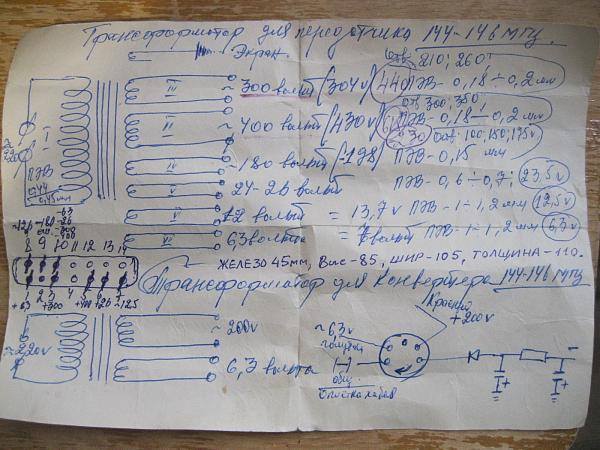 Трансформатор для передатчика 144-146 мгц.
Экран.
отв. 210; 260т
~ 300 вольт (304v) 440 ПЭВ-0,18÷0,2 мм
отв. 300; 350
~ 400 вольт (430v) ПЭВ-0,18÷0,2 мм
630 отв. 100; 150; 175v
~ 180 вольт (-198) ПЭВ-0,15 мм
24-26 вольт ПЭВ-0,6÷0,7; 23,5v
12 вольт = 13,7v ПЭВ-1-1,2мм 12,5v
6,3 вольта = 7 вольт ПЭВ-1-1,2мм 6,3v
I
II
III
IV
V
VI
~220
ПЭВ
0,44
0,45мм
8 9 10 11 12 13 14
+63 +300 +400 +26 -125
ЖЕЛЕЗО 45мм, Выс-85, шир-105, толщина-110.
Трансформатор для Конвертера 144-146 мгц
~220v
~ 200v
6,3 вольта
Красный
+200v
~6,3v
голубой
общ.
оплетка кабеля